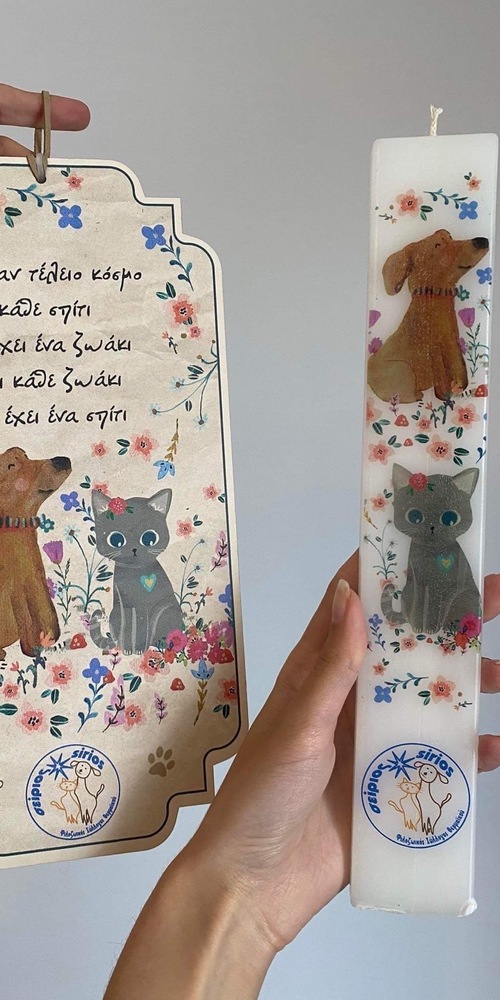 αν τέλειο κόσμο
κάθε σπίτι
χει ένα ζωάκι
ι κάθε ζωάκι
έχει ένα σπίτι
σείριος sirios
Φιλοζωικός Σύλλογος Θερμαϊκού
σείριος sirios
Φιλοζωικός Σύλλογος Θερμαϊκού